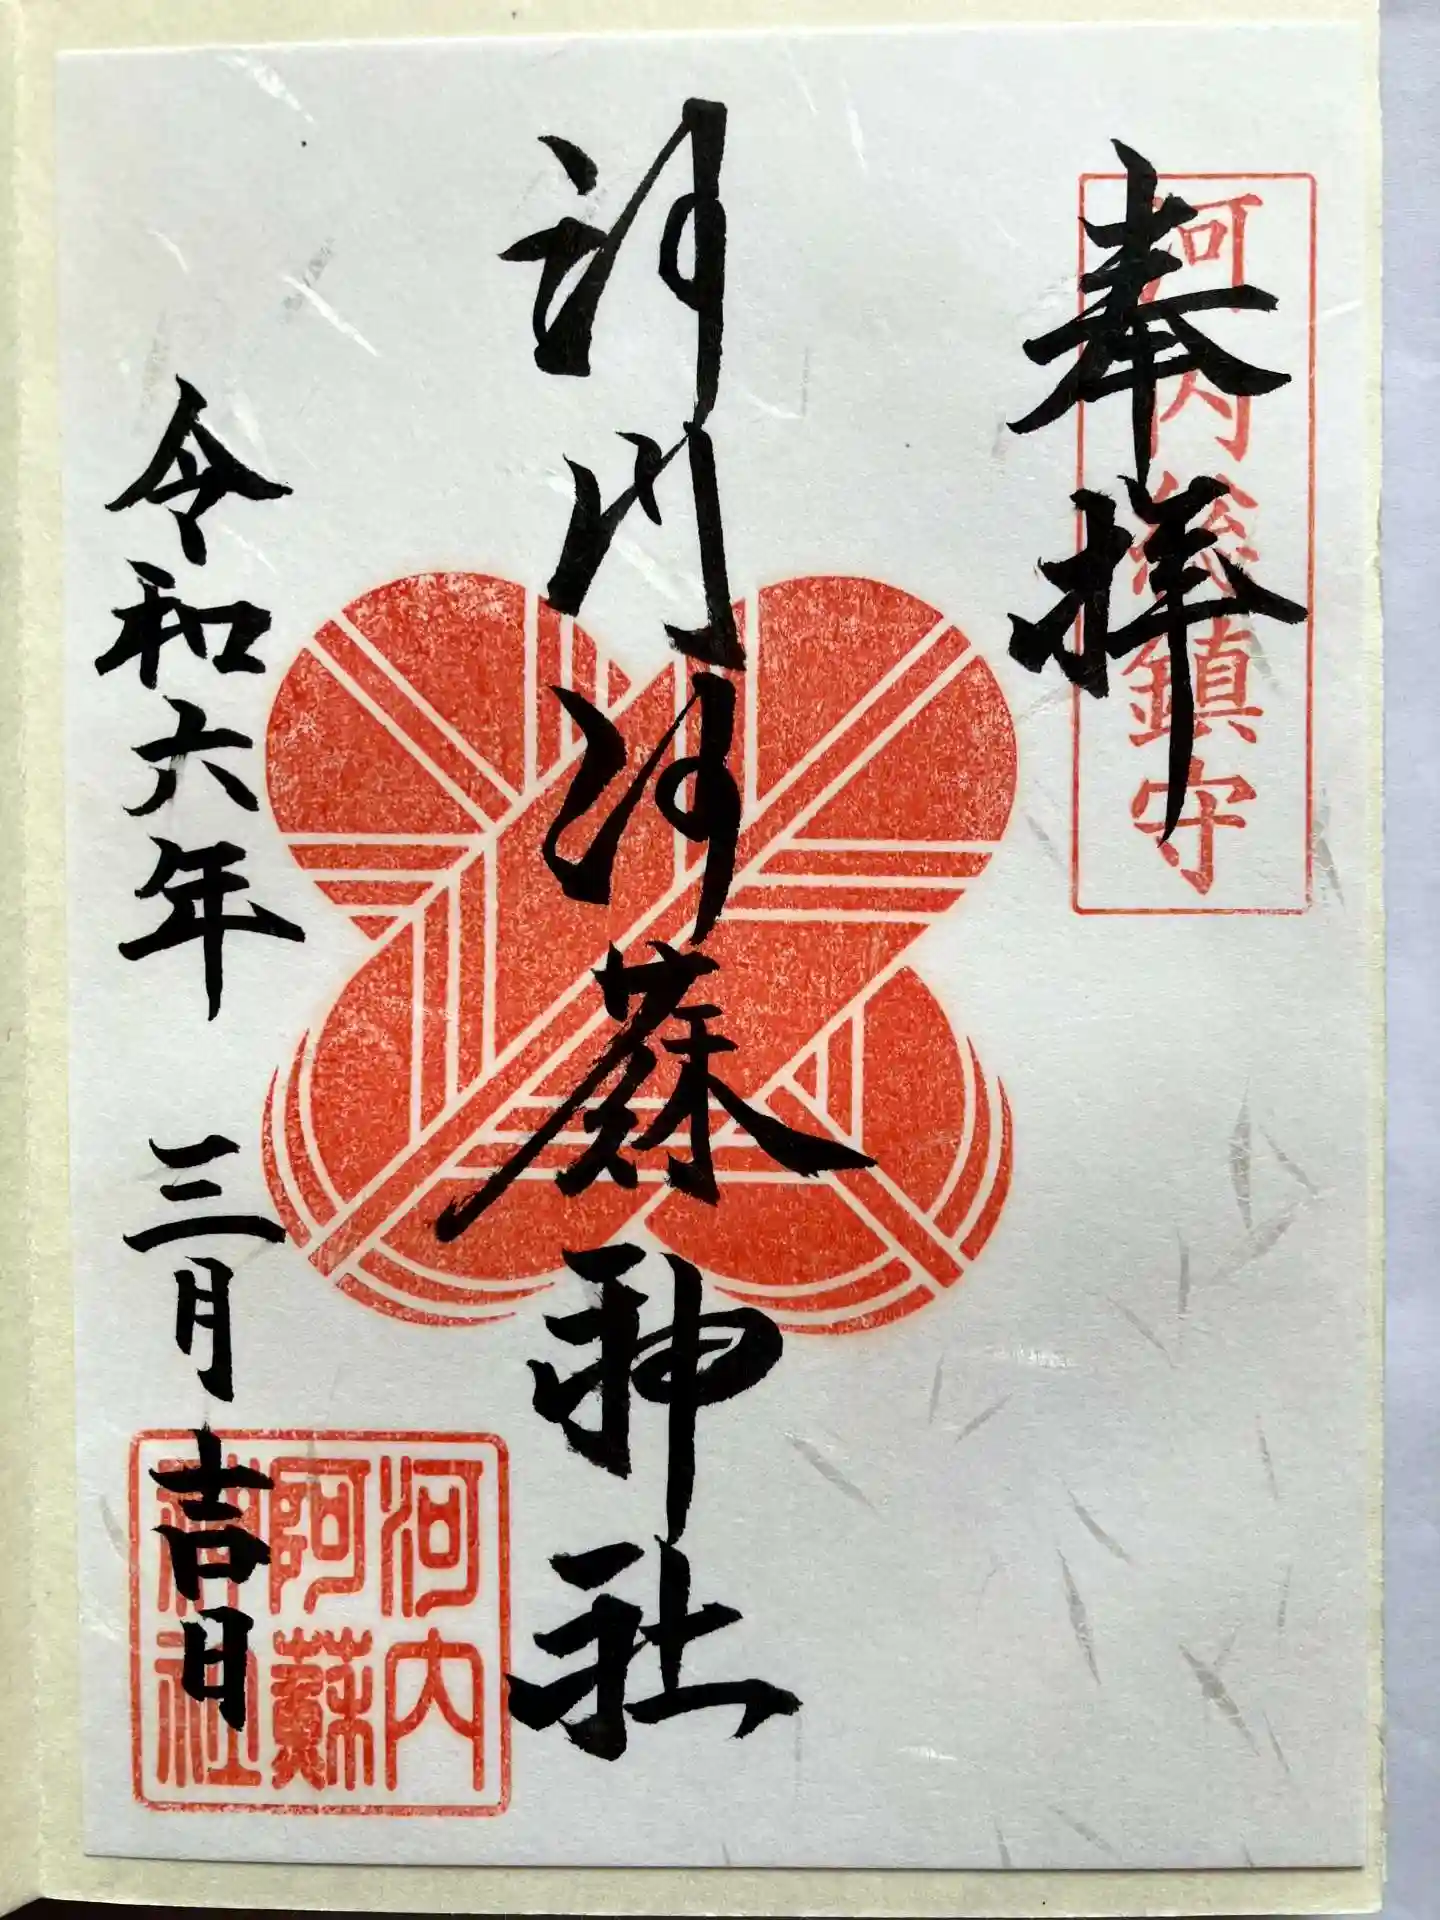 奉拝
河内総鎮守
河内阿蘇神社
令和六年 三月 吉日
河内
阿蘇
神社